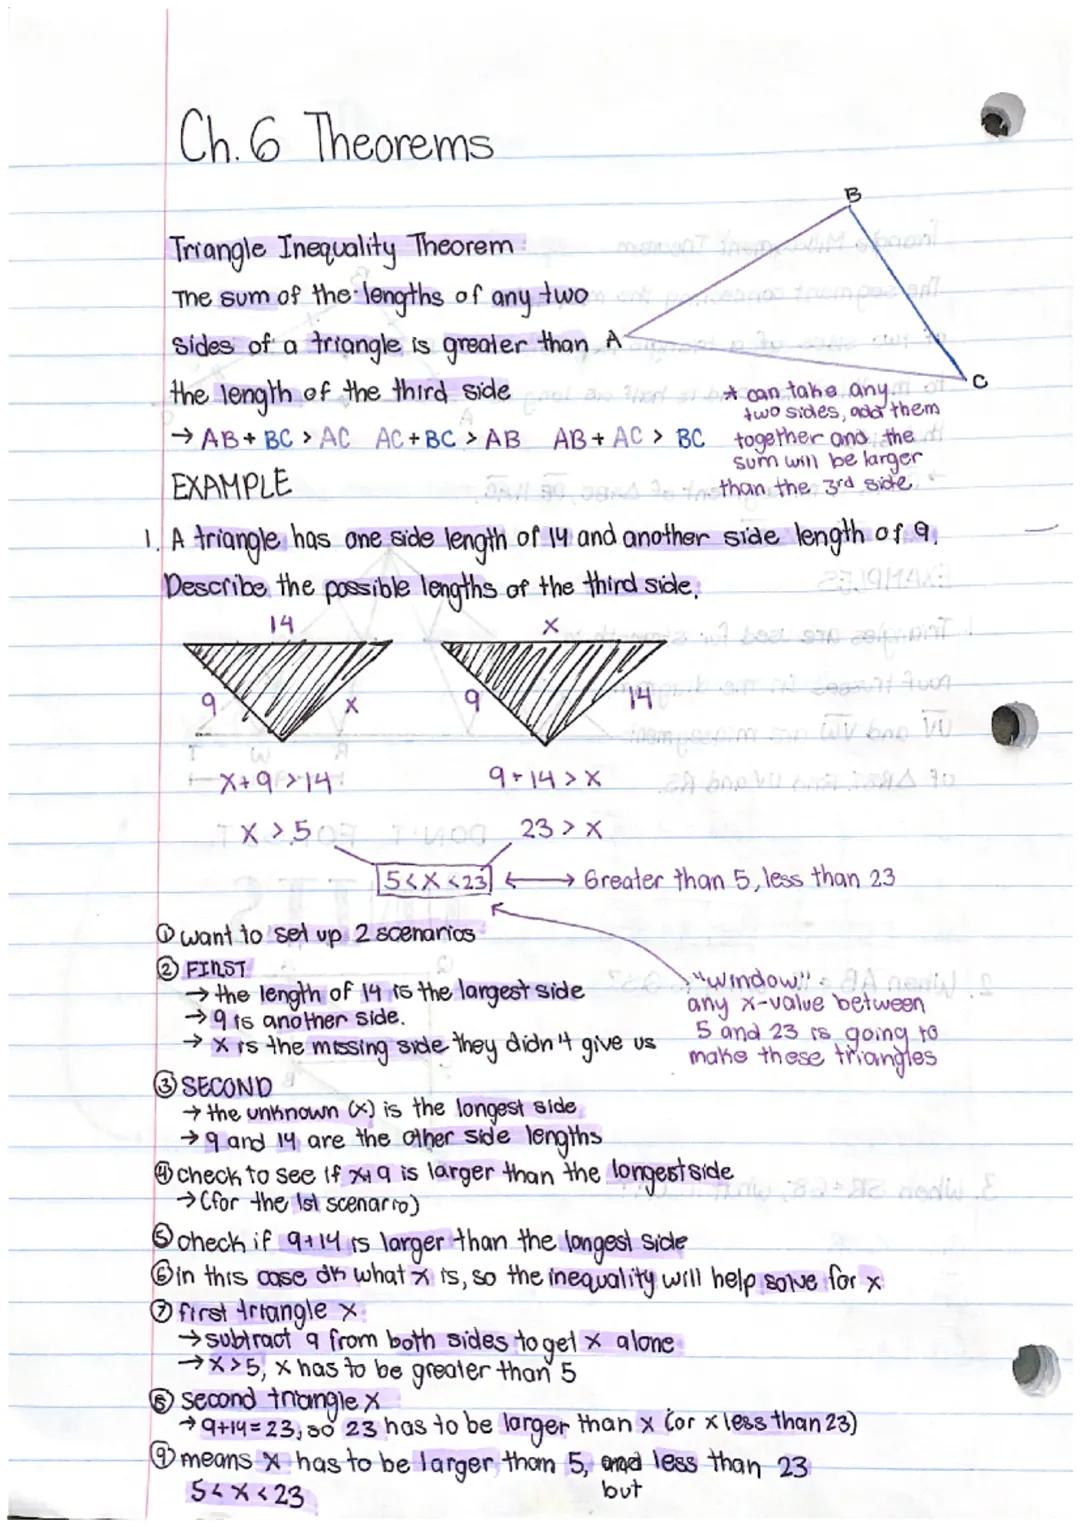 Ch. 6 Theorems
B
Triangle Inequality Theorem
The sum of the lengths of any two
sides of a triangle is greater than
A
the length of the third side
C
→ AB + BC > AC AC + BC > AB AB + AC > BC
* can take any
two sides, add them
together and the
sum will be larger
than the 3rd side.
EXAMPLE
1. A triangle has one side length of 14 and another side length of 9.
Describe the possible lengths of the third side.
14
x
9
x
9
14
x+9>14
9+14>x
x>5
23>x
5<x<23 ↔ Greater than 5, less than 23
① want to set up 2 scenarios
② FIRST
→ the length of 14 is the largest side
→ 9 is another side.
→ x is the missing side they didn't give us
"window"
any x-value between
5 and 23 is going to
make these triangles
③ SECOND
→ the unknown (x) is the longest side
→ 9 and 14 are the other side lengths
④ check to see if x+9 is larger than the longest side
→ (for the 1st scenario)
⑤ check if 9+14 is larger than the longest side
⑥ in this case dk what x is, so the inequality will help solve for x
⑦ first triangle x
→ subtract 9 from both sides to get x alone
→ x>5, x has to be greater than 5
⑧ second triangle x
→ 9+14=23, so 23 has to be larger than x (or x less than 23)
⑨ means x has to be larger than 5, and less than 23
but
5<x<23